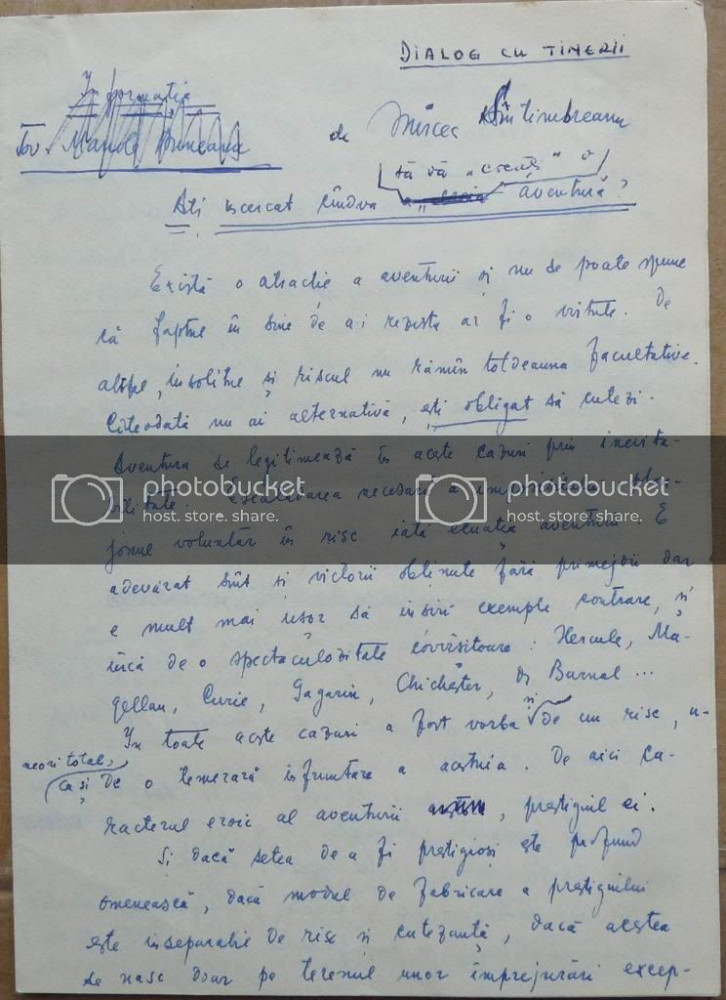 DIALOG CU TINERII
Informația
Tov. Manole
de Mircea Sîntimbreanu
să vă „creați" o
Ați încercat cîndva aventură?
Există o atracție a aventurii și nu se poate spune
că faptul în sine de a-i rezista ar fi o virtute. De
altfel, insolitul și riscul nu rămîn totdeauna facultative.
Cîteodată nu ai alternativă, ești obligat să cutezi.
Aventura se legitimează în aceste cazuri prin inevita-
bilitate. Escaladarea necesară a imposibilului, plon-
jonul voluntar în risc iată ecuația aventurii. E
adevărat sînt și victorii obținute fără primejdii dar
e mult mai ușor să înșiri exemple contrare, și
încă de o spectaculozitate covîrșitoare: Hercule, Ma-
gellan, Curie, Gagarin, Chichester, dr Barnal...
In toate aceste cazuri a fost vorba și de un risc, u-
neori total,
ca și de o temerară înfruntare a acestuia. De aici ca-
racterul eroic al aventurii, prestigiul ei.
Și dacă setea de a fi prestigioși este profund
omenească, dacă modul de fabricare a prestigiului
este inseparabil de risc și cutezanță, dacă acestea
se nasc doar pe terenul unor împrejurări excep-
photobucket
host. store. share.
photobucket
host. store. share.